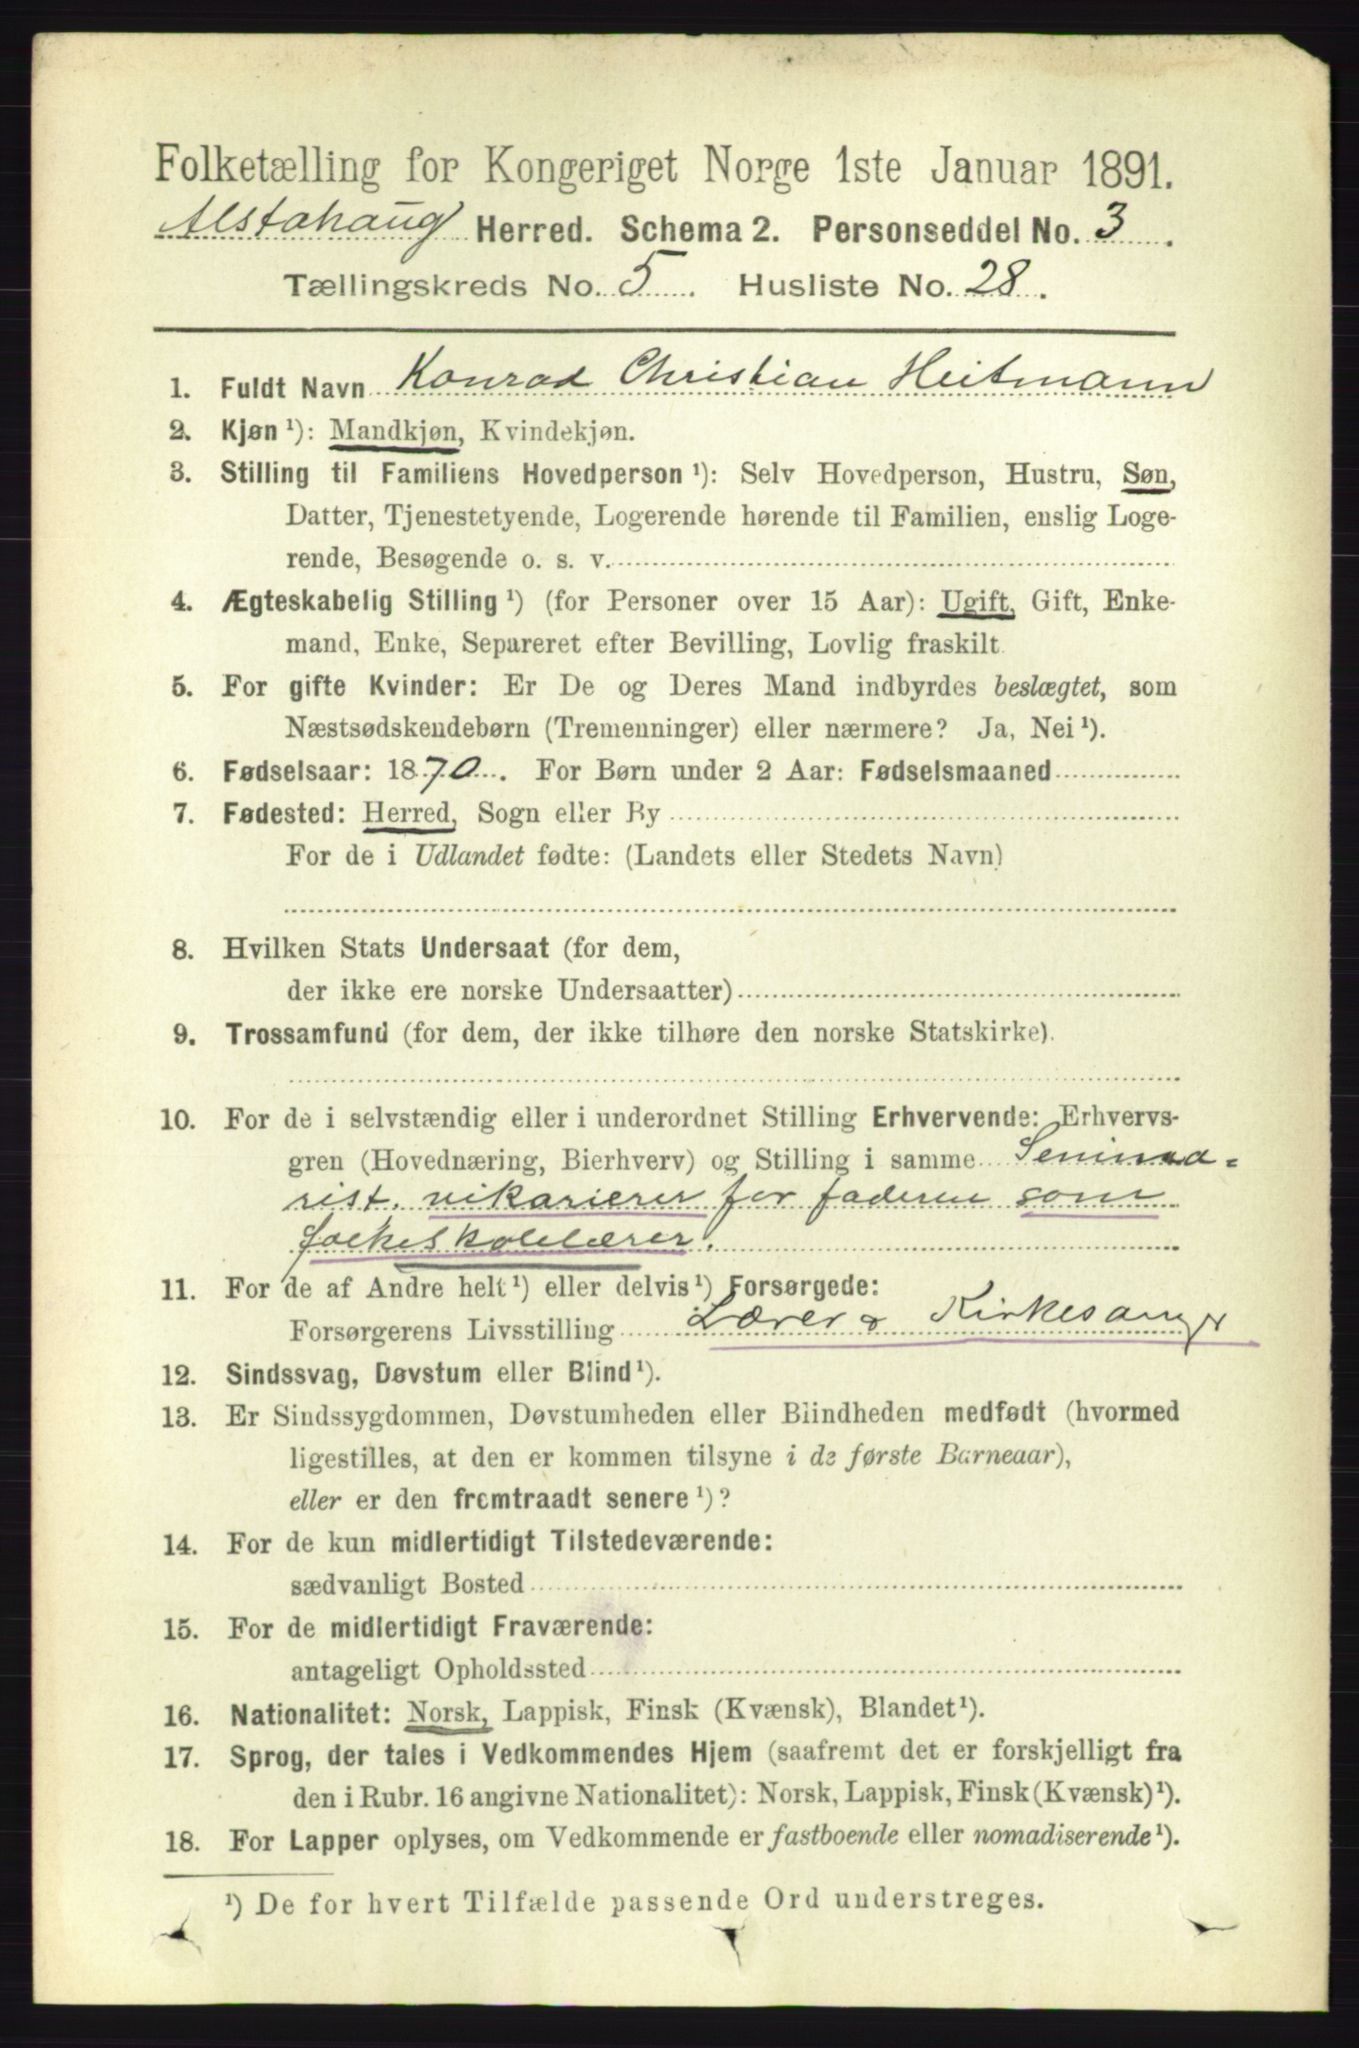 Folketælling for Kongeriget Norge 1ste Januar 1891.
Alstahaug Herred. Schema 2. Personseddel No. 3.
Tællingskreds No. 5. Husliste No. 28.
1. Fuldt Navn Konrad Christian Heitmann
2. Kjøn ¹): Mandkjøn, Kvindekjøn.
3. Stilling til Familiens Hovedperson ¹): Selv Hovedperson, Hustru, Søn,
Datter, Tjenestetyende, Logerende hørende til Familien, enslig Loge-
rende, Besøgende o. s. v.
4. Ægteskabelig Stilling ¹) (for Personer over 15 Aar): Ugift, Gift, Enke-
mand, Enke, Separeret efter Bevilling, Lovlig fraskilt.
5. For gifte Kvinder: Er De og Deres Mand indbyrdes beslægtet, som
Næstsødskendebørn (Tremenninger) eller nærmere? Ja, Nei ¹).
6. Fødselsaar: 1870. For Børn under 2 Aar: Fødselsmaaned
7. Fødested: Herred, Sogn eller By
For de i Udlandet fødte: (Landets eller Stedets Navn)
8. Hvilken Stats Undersaat (for dem,
der ikke ere norske Undersaatter)
9. Trossamfund (for dem, der ikke tilhøre den norske Statskirke).
10. For de i selvstændig eller i underordnet Stilling Erhvervende: Erhvervs-
gren (Hovednæring, Bierhverv) og Stilling i samme Semina-
rist. vikarierer for faderen som
folkeskolelærer.
11. For de af Andre helt ¹) eller delvis ¹) Forsørgede:
Forsørgerens Livsstilling Lærer & Kirkesanger
12. Sindssvag, Døvstum eller Blind ¹).
13. Er Sindssygdommen, Døvstumheden eller Blindheden medfødt (hvormed
ligestilles, at den er kommen tilsyne i de første Barneaar),
eller er den fremtraadt senere ¹)?
14. For de kun midlertidigt Tilstedeværende:
sædvanligt Bosted
15. For de midlertidigt Fraværende:
antageligt Opholdssted
16. Nationalitet: Norsk, Lappisk, Finsk (Kvænsk), Blandet ¹).
17. Sprog, der tales i Vedkommendes Hjem (saafremt det er forskjelligt fra
den i Rubr. 16 angivne Nationalitet): Norsk, Lappisk, Finsk (Kvænsk) ¹).
18. For Lapper oplyses, om Vedkommende er fastboende eller nomadiserende ¹).
¹) De for hvert Tilfælde passende Ord understreges.